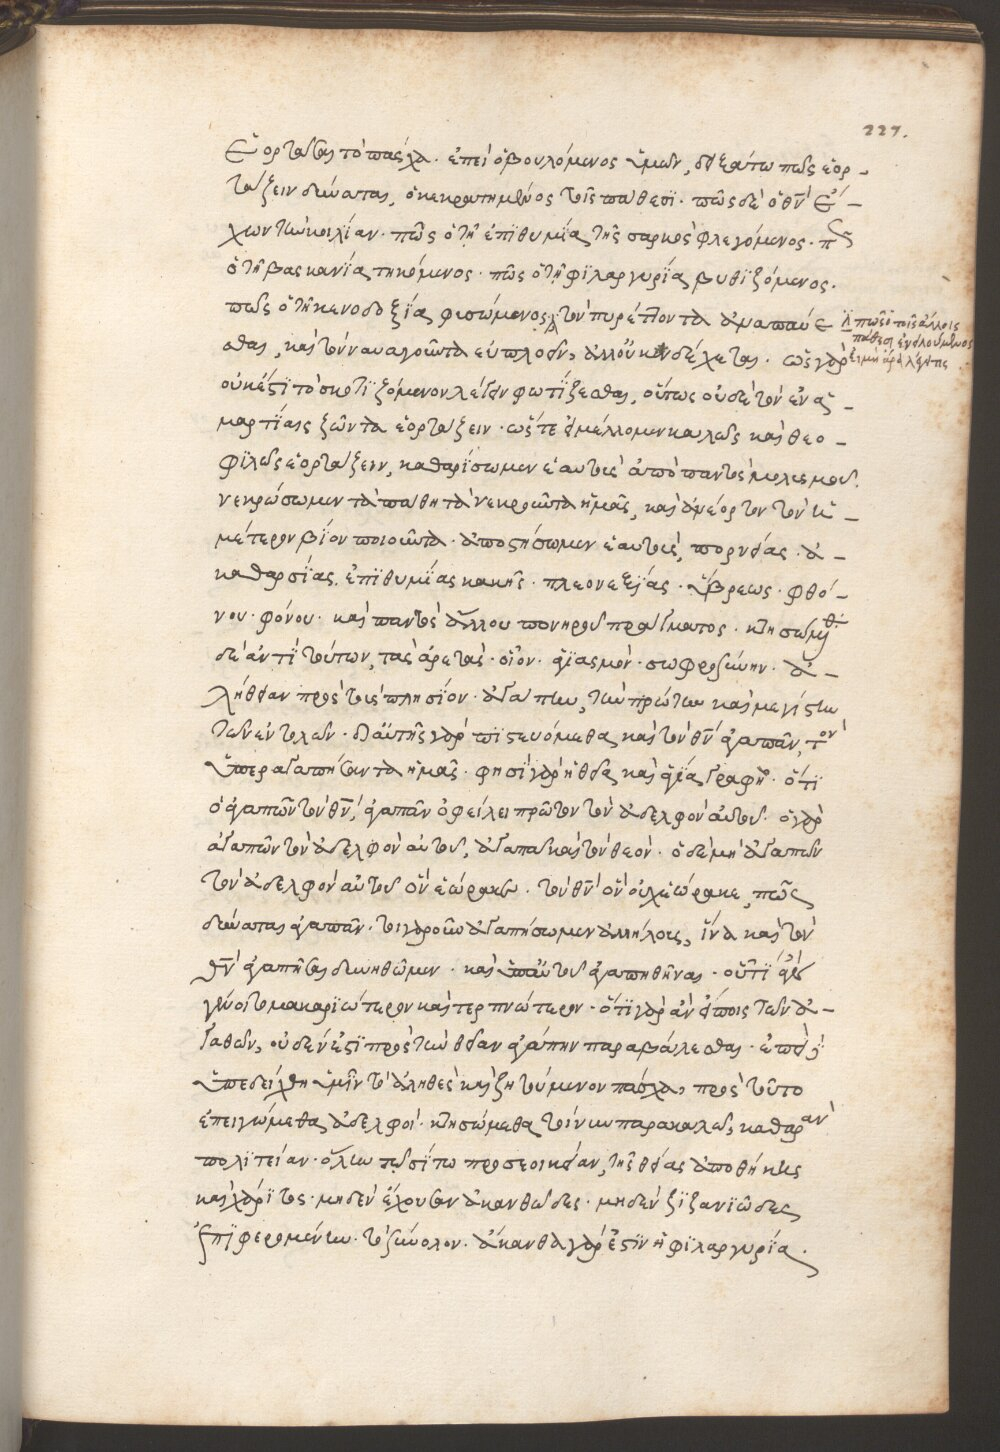 227.
ἑορτάσαι τὸ πάσχα. ἐπεὶ ὁ βουλόμενος ὑμῶν, δειξάτω πῶς ἑορ-
τάζειν δύναται, ὁ κεκρατημένος τοῖς πάθεσι. πῶς δὲ ὁ θν̄ ἔ-
χων τὴν κοιλίαν. πῶς ὁ τῆ ἐπϊθυμία τῆς σαρκὸς φλεγόμενος. πῶς
ὁ τῆ βασκανία τηκόμενος. πῶς ὁ τῆ φϊλαργυρία βυθϊζόμενος.
πῶς ὁ τῆ κενοδοξία φυσώμενος, τὸν πυρέττοντα ἀναπαύε-
ἢ πῶς ὁ τοῖς ἄλλοις
πάθεσι ἐνειλούμενος
εἰ μὴ ἄρα λέγοι τις
σθαι, καὶ τὸν ναυαγοῦντα εὐπλοεῖν, ἀλλ' οὐκ ἐνδέχεται. ὡς γὰρ
οὐκ ἔστι τὸ σκοτϊζόμενον λέγειν φωτίζεσθαι, οὕτως οὐδὲ τὸν ἐν ἁ-
μαρτίαις ζῶντα ἑορτάζειν. ὥστε εἰ μέλλομεν καλῶς καὶ θεο-
φϊλῶς ἑορτάζειν, καθαρίσωμεν ἑαυτοὺς ἀπὸ παντὸς μολυσμοῦ.
νεκρώσωμεν τὰ πάθη τὰ νεκροῦντα ἡμᾶς, καὶ ἀνέορτον τὸν ἡ-
μέτερον βίον ποιοῦντα. ἀποστήσωμεν ἑαυτοὺς, πορνείας. ἀ-
καθαρσίας. ἐπϊθυμίας κακῆς. πλεονεξίας. ὕβρεως. φθό-
νου. φόνου. καὶ παντὸς ἄλλου πονηροῦ πράγματος. κτησώμεθα
δὲ ἀντὶ τούτων, τὰς ἀρετάς. οἷον. ἁγϊασμὸν. σωφροσύνην. ἀ-
λήθειαν πρὸς τοὺς πλησίον. ἀγάπην, τὴν πρώτην καὶ μεγίστην
τῶν ἐντολῶν. δι' αὐτῆς γὰρ πιστευόμεθα καὶ τὸν θν̄ ἀγαπᾶν, τὸν
ὑπεραγαπήσαντα ἡμᾶς. φησὶ γὰρ ἡ θεία καὶ ἁγία γραφή. ὅτι
ὁ ἀγαπῶν τὸν θν̄, ἀγαπᾶν ὀφείλει πρῶτον τὸν ἀδελφὸν αὐτοῦ. ὁ γὰρ
ἀγαπῶν τὸν ἀδελφὸν αὐτοῦ, ἀγαπᾶ καὶ τὸν θεὸν. ὁ δὲ μὴ ἀγαπῶν
τὸν ἀδελφὸν αὐτοῦ ὃν ἑώρακεν. τὸν θν̄ ὃν οὐχ ἑώρακε, πῶς
δύναται ἀγαπᾶν. τοιγαροῦν ἀγαπήσωμεν ἀλλήλους, ἵνα καὶ τὸν
θν̄ ἀγαπῆσαι δυνηθῶμεν. καὶ ὑπ' αὐτοῦ ἀγαπηθῆναι. οὗ τί ἂν
γένοιτο μακαριώτερον καὶ τερπνώτερον. ὅτι γὰρ ἂν εἴποις τῶν ἀ-
γαθῶν, οὐδέν ἐστι πρὸς τὴν θείαν ἀγάπην παραβάλεσθαι. ἐπεὶ
ὑπεδείχθη ὑμῖν τὸ ἀληθὲς καὶ ζητούμενον πάσχα, πρὸς τοῦτο
ἐπειγώμεθα ἀδελφοί. κτησώμεθα τοίνυν παρακαλῶ, καθαρὰν
πολιτείαν. ὅλην τῷ σίτω προσεοικυῖαν, τῆς θείας ἀποθήκης
καὶ χάριτος. μηδὲν ἔχουσαν ἀκανθῶδες. μηδὲν ζϊζανϊῶδες
ἐπϊφερομένην τοσύνολον. ἄκανθα γάρ ἐστιν ἡ φϊλαργυρία.